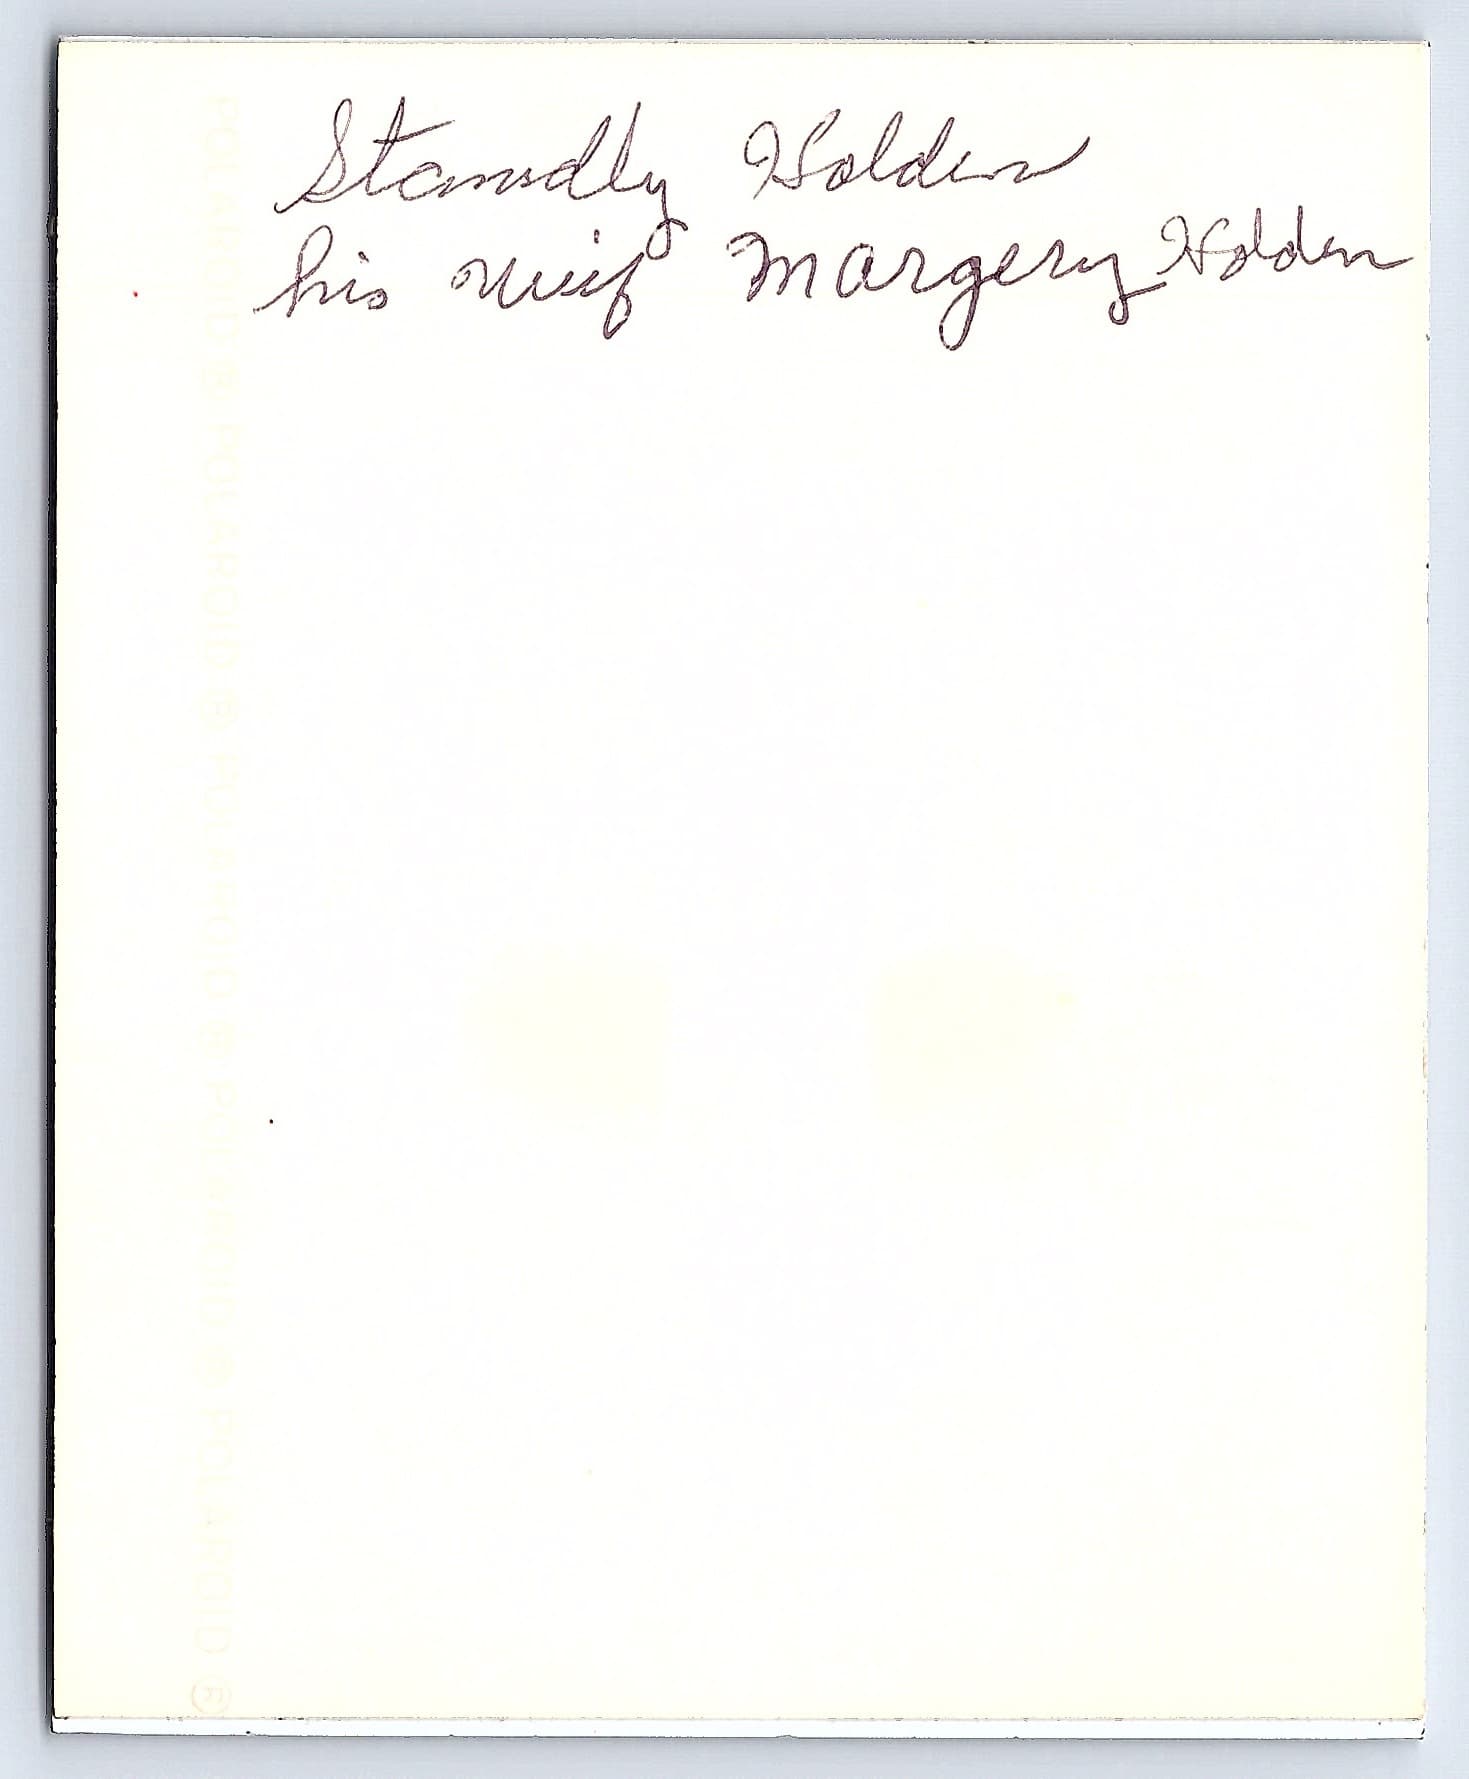 Standly Holden
his Margery Holden
POLAROID ® POLAROID ® POLAROID ® POLAROID ® POLAROID ®